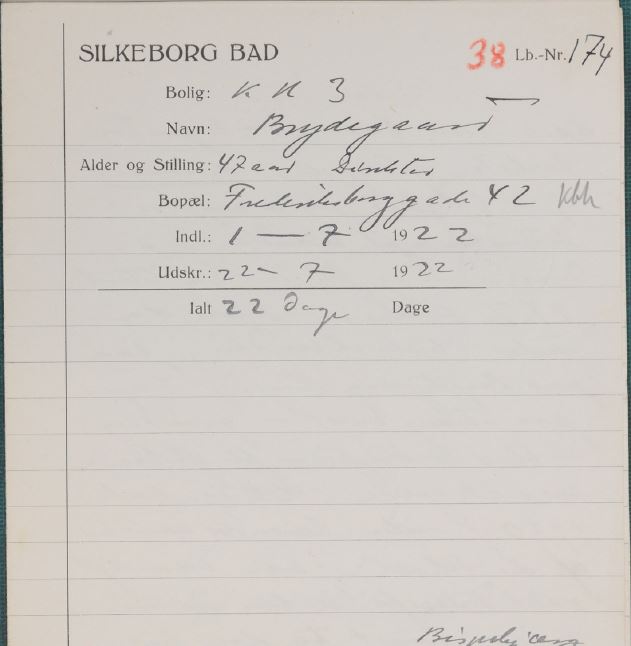 SILKEBORG BAD 38 Lb.-Nr. 174
Bolig: K N 3
Navn: Brydegaard
Alder og Stilling: 47 aar Direktør
Bopæl: Frederiksborggade 42 Kbh
Indl.: 1 — 7 1922
Udskr.: 22 - 7 1922
Ialt 22 Dage Dage